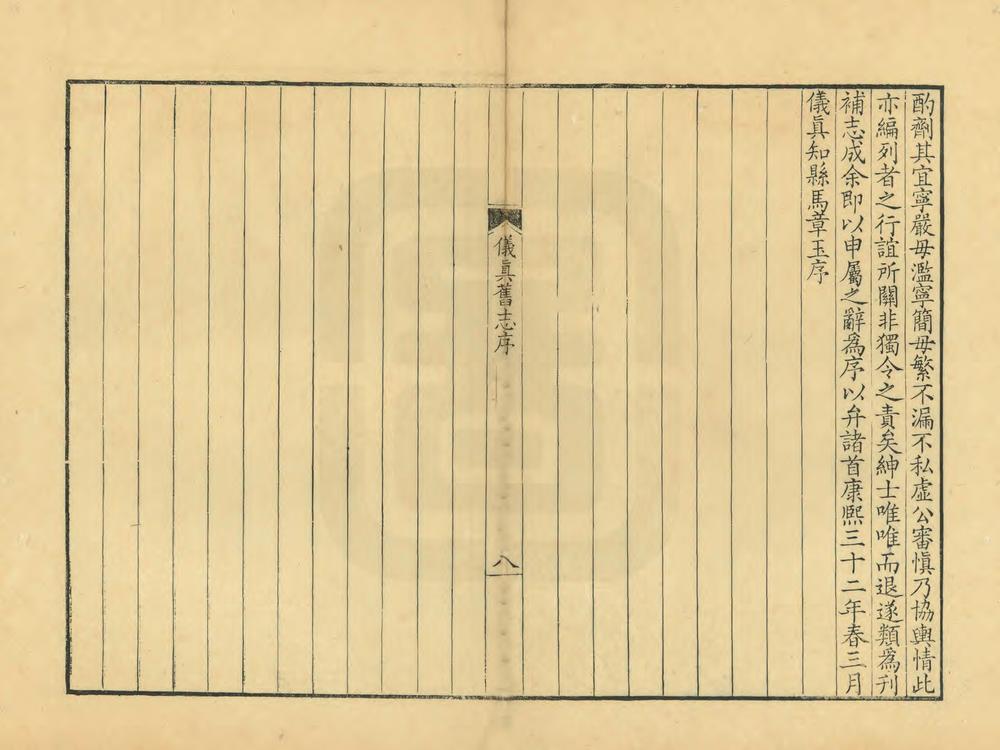 酌劑其宜寧嚴毋濫寧簡毋繁不漏不私虛公審愼乃協輿情此
亦編列者之行誼所關非獨令之責矣紳士唯唯而退遂類爲刋
補志成余卽以申屬之辭爲序以弁諸首康熙三十二年春三月
儀眞知縣馬章玉序
儀眞舊志序
八